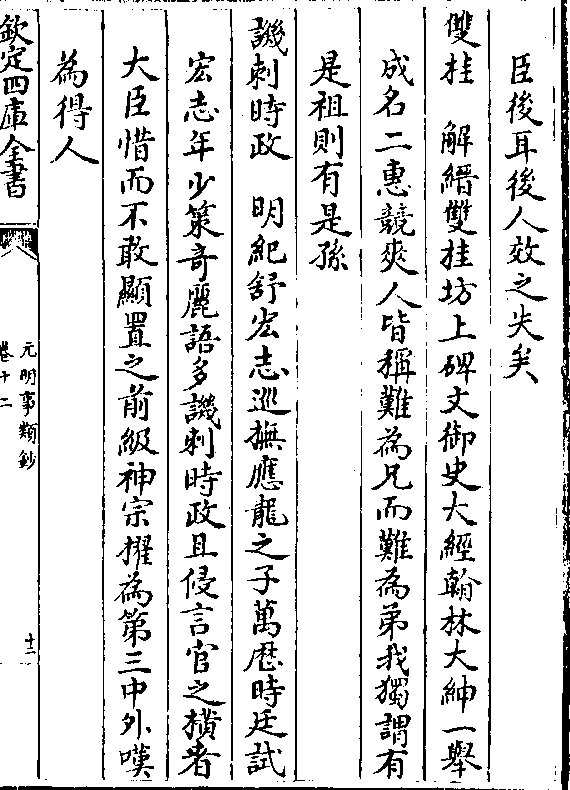 臣後耳後人效之失矣
雙桂　解縉雙桂坊上碑文御史大經翰林大紳一舉
成名二惠競爽人皆稱難為兄而難為弟我獨謂有
是祖則有是孫
譏刺時政　明紀舒宏志巡撫應龍之子萬歴時廷試
宏志年少策奇麗語多譏刺時政且侵言官之横者
大臣惜而不敢顯置之前級神宗擢為第三中外嘆
為得人
欽定四庫全書
元明事類鈔
卷十二
十二